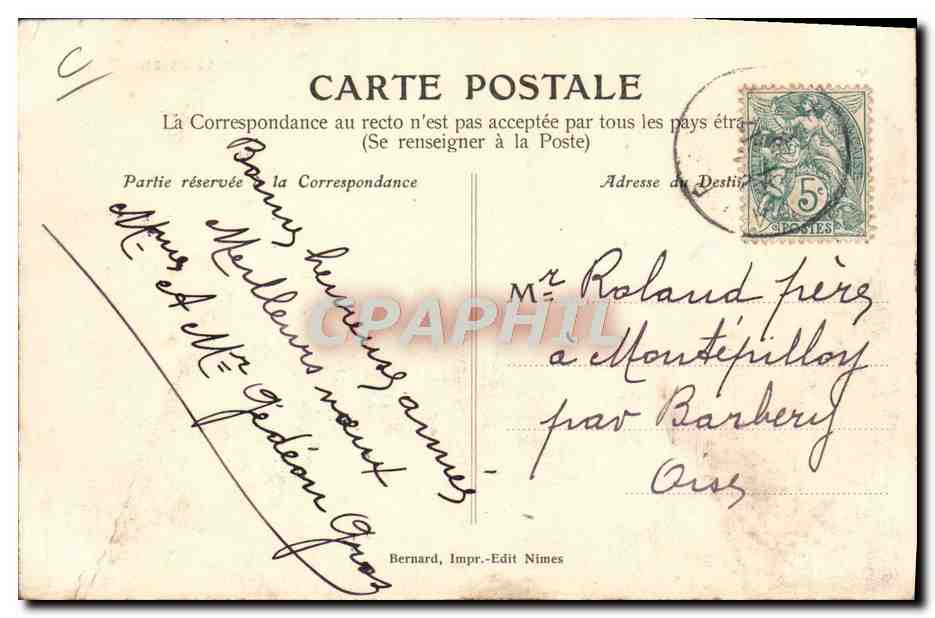 CARTE POSTALE
La Correspondance au recto n'est pas acceptée par tous les pays étra
(Se renseigner à la Poste)
Partie réservée à la Correspondance
Adresse du Destin
5c
POSTES
Bonne heureuse année
Meilleurs vœux
Mme & Mr Gédéon Gros
Mr Roland père
à Montépilloy
par Barbery
Oise
CPAPHIL
Bernard, Impr.-Edit Nimes